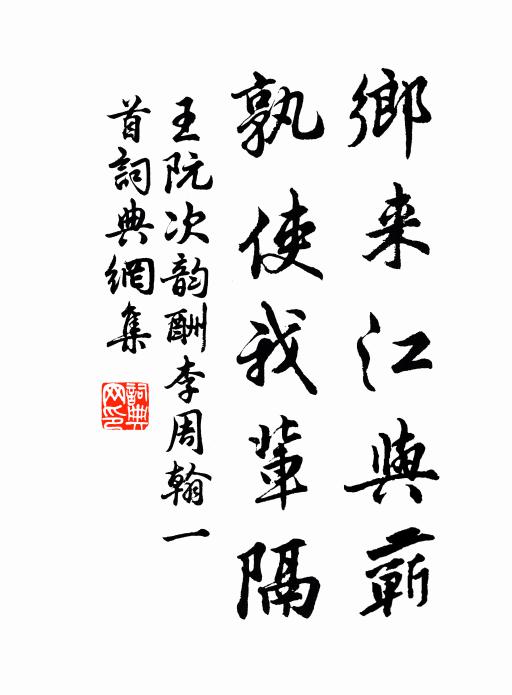 鄉来江與蘄
孰使我輩隔
王阮次韵酬李周翰一
首詞典網集
詞典网印